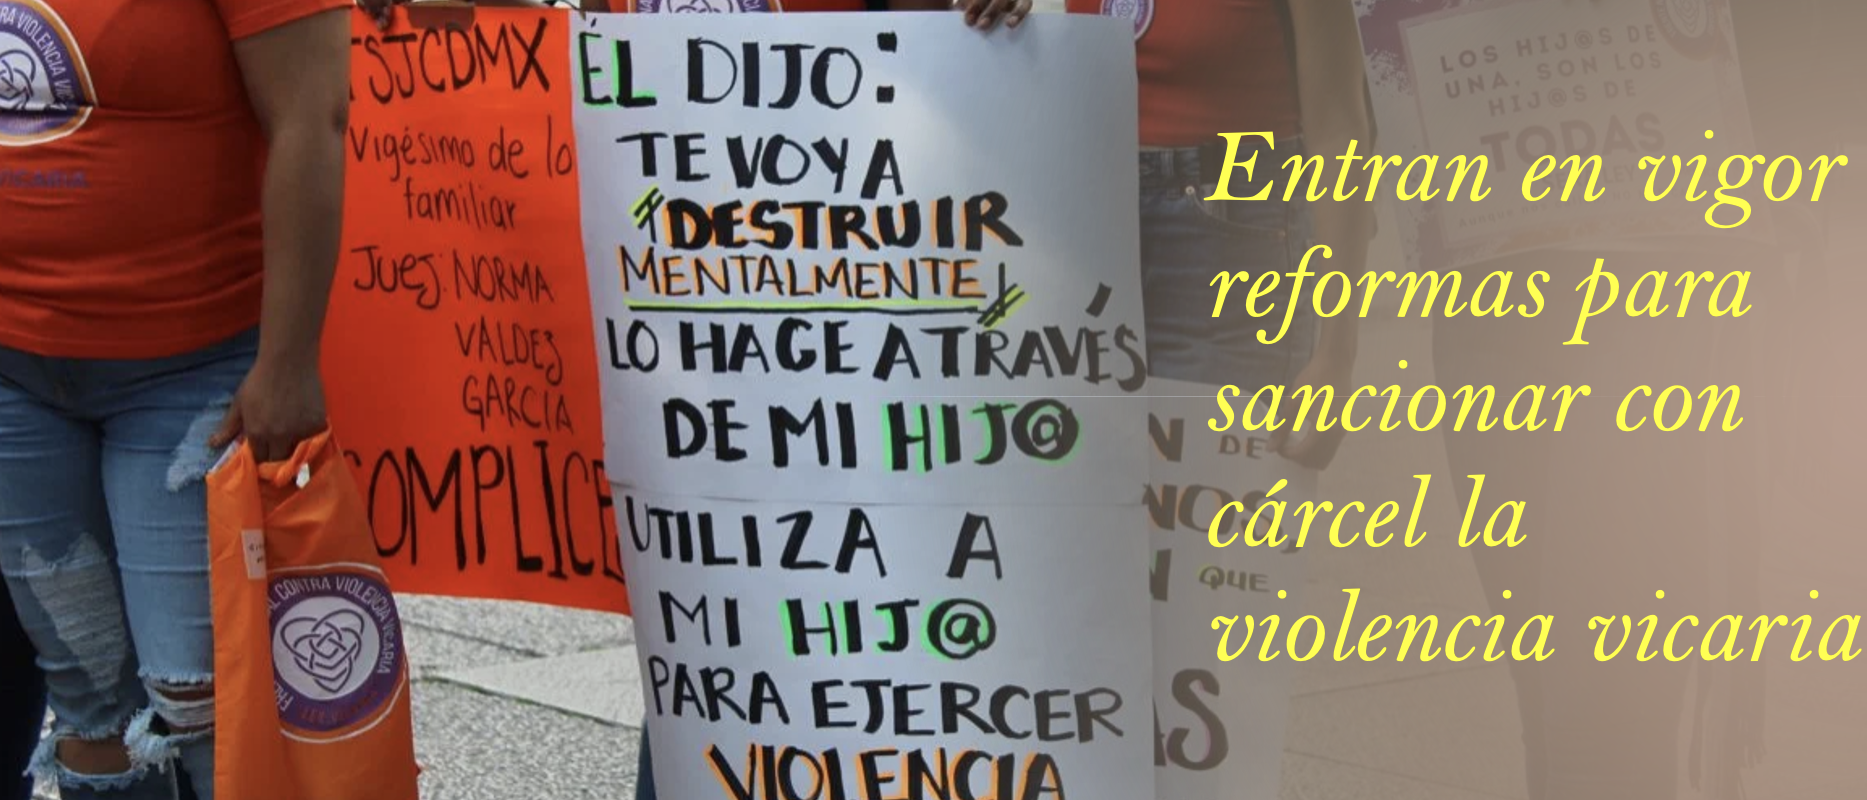 TSJCDMX
Vigésimo de lo
familiar
Juez: NORMA
VALDEZ
GARCIA
COMPLICE
ÉL DIJO:
TE VOY A
DESTRUIR
MENTALMENTE
LO HACE A TRAVÉS
DE MI HIJ@
UTILIZA A
MI HIJ@
PARA EJERCER
VIOLENCIA
LOS HIJ@S DE
UNA, SON LOS
HIJ@S DE
TODAS
Entran en vigor
reformas para
sancionar con
cárcel la
violencia vicaria
DE
NOS,
QUE
CONTRA VIOLENCIA VICARIA